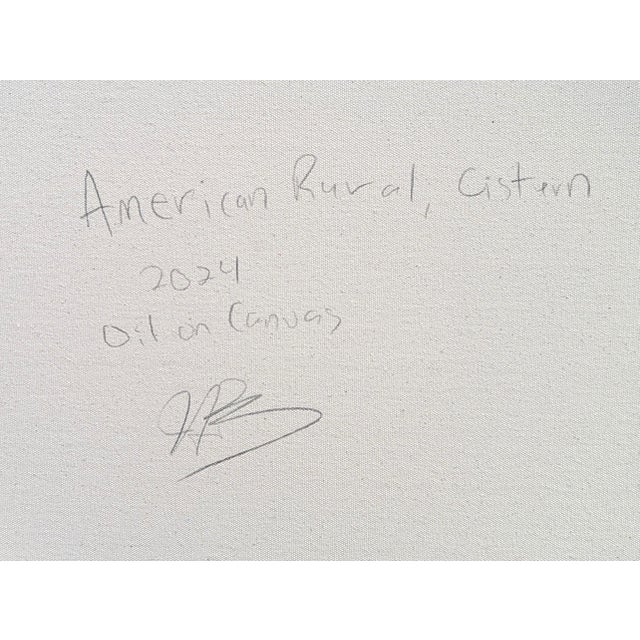 American Rural, Cistern
2024
Oil on Canvas